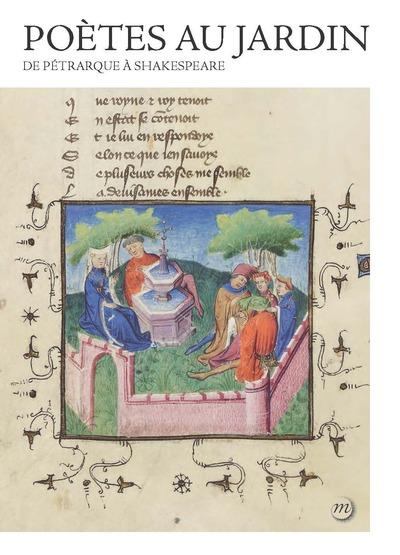 POÈTES AU JARDIN
DE PÉTRARQUE À SHAKESPEARE
q ue royne & roy tenoit
E n estat se contenoit
E t ie lui en respondye
S elon ce que ien sauoye
d e plusieurs choses me semble
L a. deuisames ensemble.
m